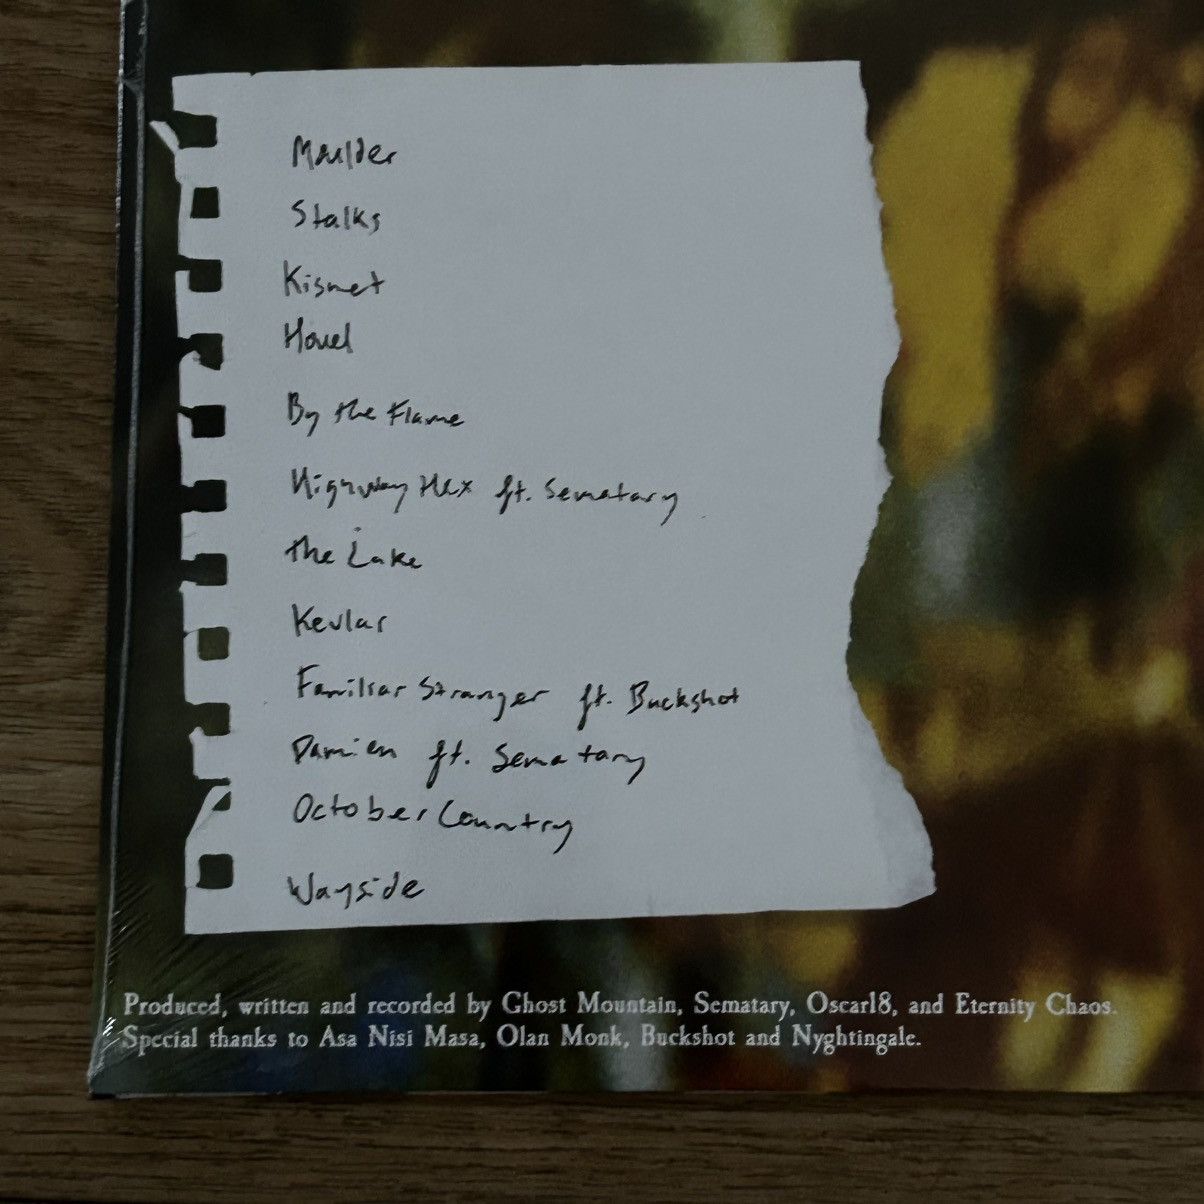 Moulder
Stalks
Kismet
Hovel
By the Flame
Highway Hex ft. Sematary
The Lake
Kevlar
Familiar Stranger ft. Buckshot
Damien ft. Sematary
October Country
Wayside
Produced, written and recorded by Ghost Mountain, Sematary, Oscar18, and Eternity Chaos.
Special thanks to Asa Nisi Masa, Olan Monk, Buckshot and Nyghtingale.